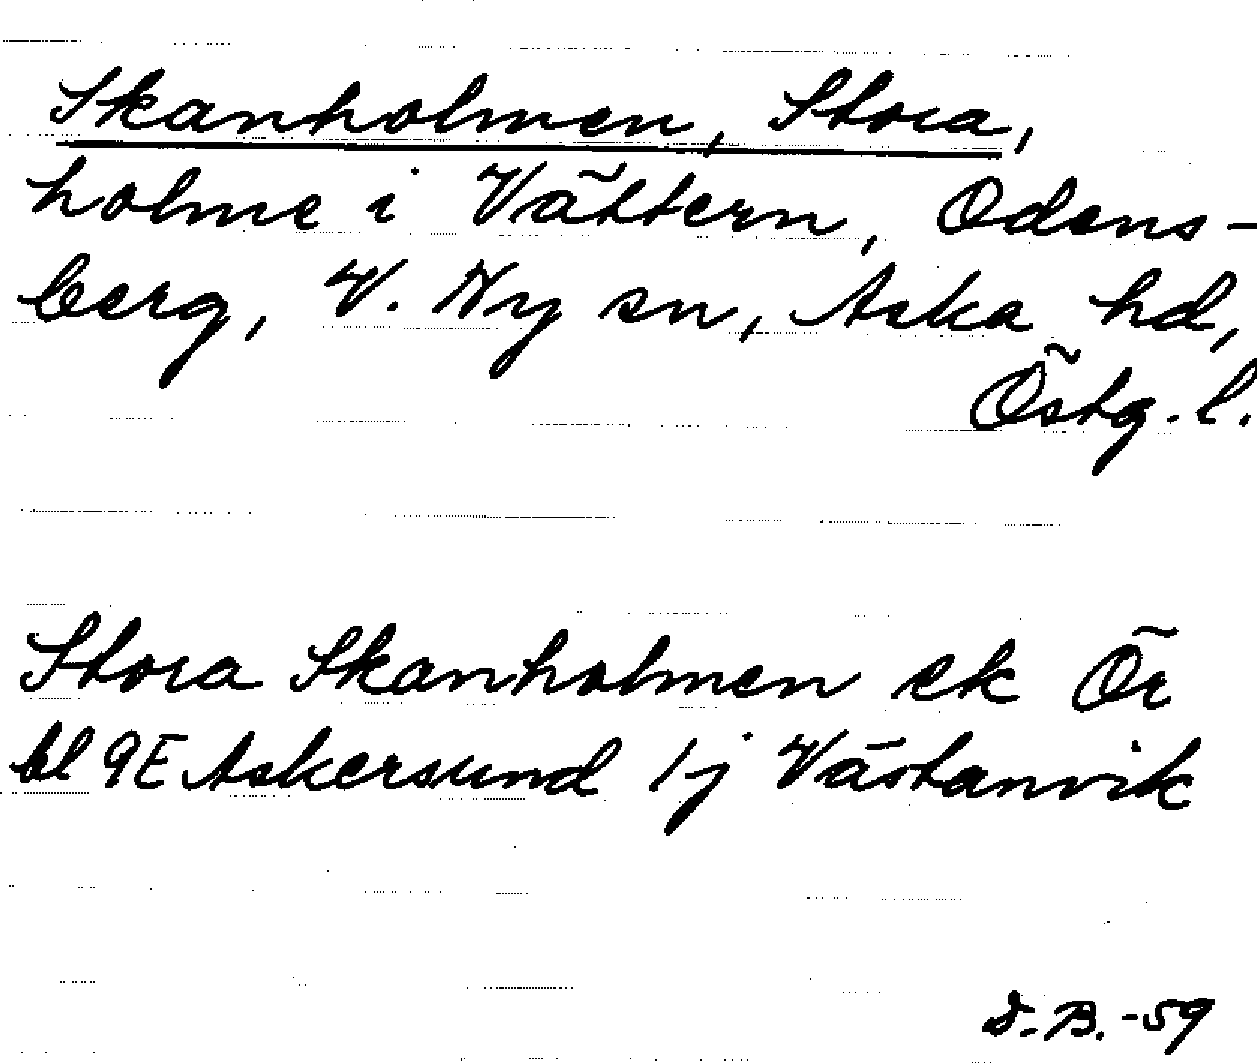 Skanholmen, Stora,
holme i Vättern, Odens-
berg, V. Ny sn, Aska hd,
Östg. l.
Stora Skanholmen ek Ör
bl 9E Askersund 1j Västanvik
D.B. -59